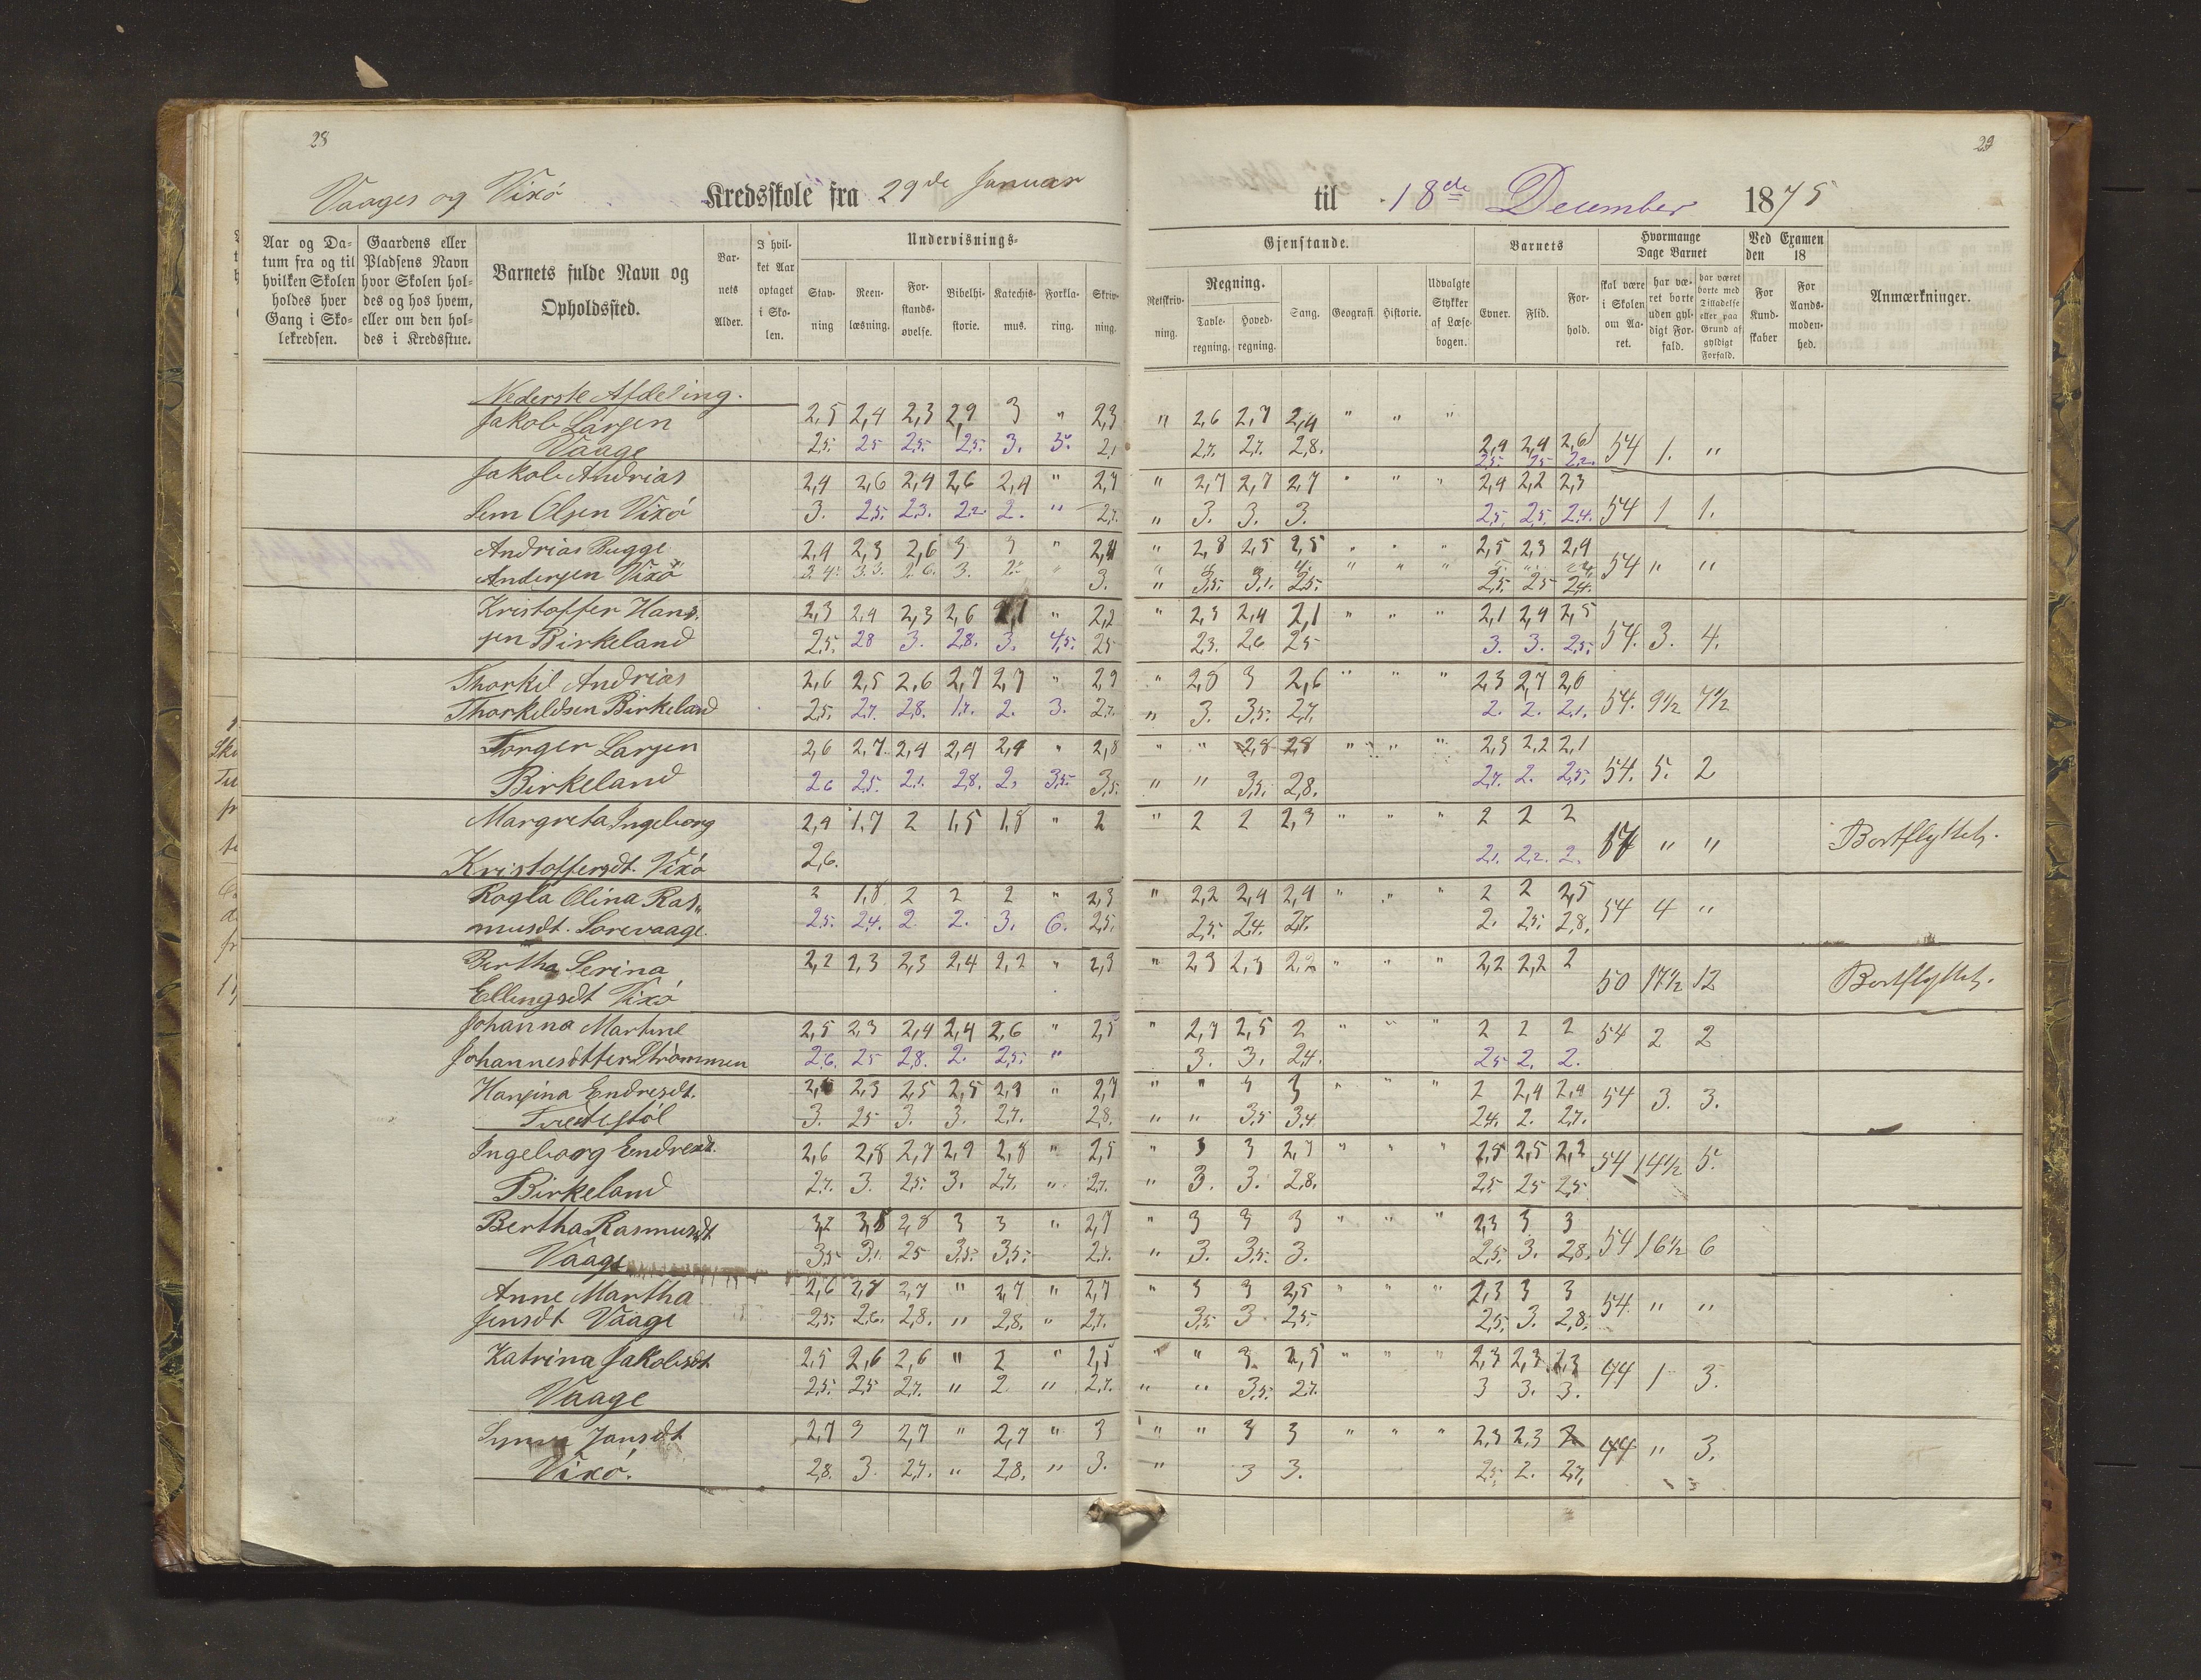 28
29
Vaages og Vixö Kredsskole fra 29de Januar til 18de December 1875
Aar og Da-
tum fra og til
hvilken Skolen
holdes hver
Gang i Sko-
lekredsen.
Gaardens eller
Pladsens Navn
hvor Skolen hol-
des og hos hvem,
eller om den hol-
des i Kredsstue.
Barnets fulde Navn og
Opholdssted.
Bar-
nets
Alder.
I hvil-
ket Aar
optaget
i Sko-
len.
Undervisnings-
Stav-
ning
Reen-
læsning.
For-
stands-
øvelse.
Bibelhi-
storie.
Katechis-
mus.
Forkla-
ring.
Skriv-
ning.
Gjenstande.
Retskriv-
ning.
Regning.
Tavle-
regning.
Hoved-
regning.
Sang.
Geografi
Historie.
Udvalgte
Stykker
af Læse-
bogen.
Barnets
Evner.
Flid.
For-
hold.
Hvormange
Dage Barnet
skal være
i Skolen
om Aa-
ret.
har væ-
ret borte
uden gyl-
digt For-
fald.
har været
borte med
Tilladelse
eller paa
Grund af
gyldigt
Forfald.
Ved Examen
den 18
For
Kund-
skaber
For
Aands-
moden-
hed.
Anmærkninger.
Nederste Afdeling.
Jakob Larsen 2,5 2,4 2,3 2,9 3 " 2,3 " 2,6 2,7 2,4 " " "
Vaage 2,5. 25 2,5. 2,5. 3. 3. 2,1 2,7. 2,7. 2,8. 2,4 2,4 2,6 54 1. "
2,5. 25 2,2.
Jakob Andrias 2,4 2,6 2,4 2,6 2,4 " 2,7 " 2,7 2,7 2,7 " " " 2,4 2,2 2,3
Sem Olsen Vixö 3. 2,5. 2,3. 2,2. 2. " 2,7. " 3. 3. 3. 2,5. 2,5. 2,4. 54 1 1.
Andrias Bugge 2,4 2,3 2,6 3 3 " " 2,8 2,5 2,5 " " " 2,5 2,3 2,4
Andersen Vixö 3. 3. " 3,5. 3,1. 2,5. 2,5. 25 2,4. 54 " "
Kristoffer Han- 2,3 2,4 2,3 2,6 " 2,2 " 2,3 2,4 2,1 " " " 2,1 2,4 2,5
sen Birkeland 2,5. 28 3. 2,8. 3. 4,5. 25 2,3. 2,6 25 3. 3. 2,5. 54. 3. 4.
Thorkil Andrias 2,6 2,5 2,6 2,7 2,7 " 2,9 " 3 2,6 " " " 2,3 2,7 2,0
Thorkildsen Birkeland 2,5. 2,7. 2,8. 1,7. 2. 3. 2,7. " 3. 3,5. 2,7. 2. 2. 2,1. 54. 9½ 7½
Torger Larsen 2,6 2,7 2,4 2,4 2,4 " 2,8 " " 2,8 2,8 " " " 2,3 2,2 2,1
Birkeland 26 2,5. 2,1. 2,8. 2. 3,5. 3,5. " " 3,5. 2,8. 2,7. 2. 2,5. 54. 5. 2
Margreta Ingeborg 2,4 1,7 2 1,5 1,8 " 2 " 2 2 2,3 " " " 2 2 2
Kristoffersdt. Vixö 2,6. 2,1. 2,2. 2. 17 " " Bortflyttet.
Rogla Olina Ras- 2 1,8 2 2 2 " 2,3 " 2,2 2,4 2,4 " " " 2 2 2,5
musdt. Sörevaage. 2,5. 2,4. 2. 2. 3. 6. 2,5. 2,5. 2,4. 2,7. 2. 2,5. 2,8. 54 4 "
Bertha Serina 2,2 2,3 2,3 2,4 2,2 " 2,3 " 2,3 2,3 2,2 " " " 2,2 2,2 2
Ellingsdt Vixö 50 17½ 12 Bortflyttet.
Johanna Martine 2,5 2,3 2,4 2,4 2,6 " 2,5 " 2,7 2,5 2 " " " 2 2 2 54 2 2
Johannesdtter Strömmen 2,6. 25 2,8. 2. 2,5. " 3. 3. 2,4. 25 2. 2.
Hansina Endresdt. 2,3 2,5 2,5 2,3 " 2,7 " " 3 3 " " " 2 2,4 2,4 54 3. 3.
3. 25 3. 3. 2,7. 2,8. " " 3,5 3,4 2,4. 2. 2,7.
Ingeborg Endresdt. 2,6 2,8 2,7 2,9 2,8 " 2,5 " 3 3 2,7 " " " 2,5 2,5 2,2
Birkeland 2,7. 3. 2,5. 3. 2,7. " 2,7. " 3. 3. 2,8. 2,5. 25 2,5 54 14½ 5.
Bertha Rasmusdt 3,2 3,8 2,8 3 3 " 2,7 " 3 3 3 " " " 2,3 3 3
Vaage 3,5 3,1. 25 3,5. 3,5. 2,7. " 3. 3,5. 3. 2,5. 3. 2,8. 54 16½ 6
Anne Martha 2,6 2,7 2,7 " 2,7 " 2,7 " 3 3 2,5 " " " 2,3 3 3
Jensdt Vaage 2,5. 2,6. 2,8. " 2,8. " 2,7. 3,5. 3 2,5. 2,5. 3. 2,8. 54. " "
Katrina Jakobsdt 2,5 2,6 2,6 " 2 " 2,5 " " 3 2,5 " " " 2,3 2,3 2,3
Vaage 2,5. 2,5 2,7. " 2. " 2,7. " " 3,5. 2,7. 3 3. 3. 44 1 3.
Jansdt 2,7 3 2,7 " 2,7 " 3 " " 3 3 " " " 2,3 2,3 2
Vixö. 2,8. 3. 2,7. " 2,8. " 3. " 3 3. 2,5. 2. 2,7. 44 " 3.